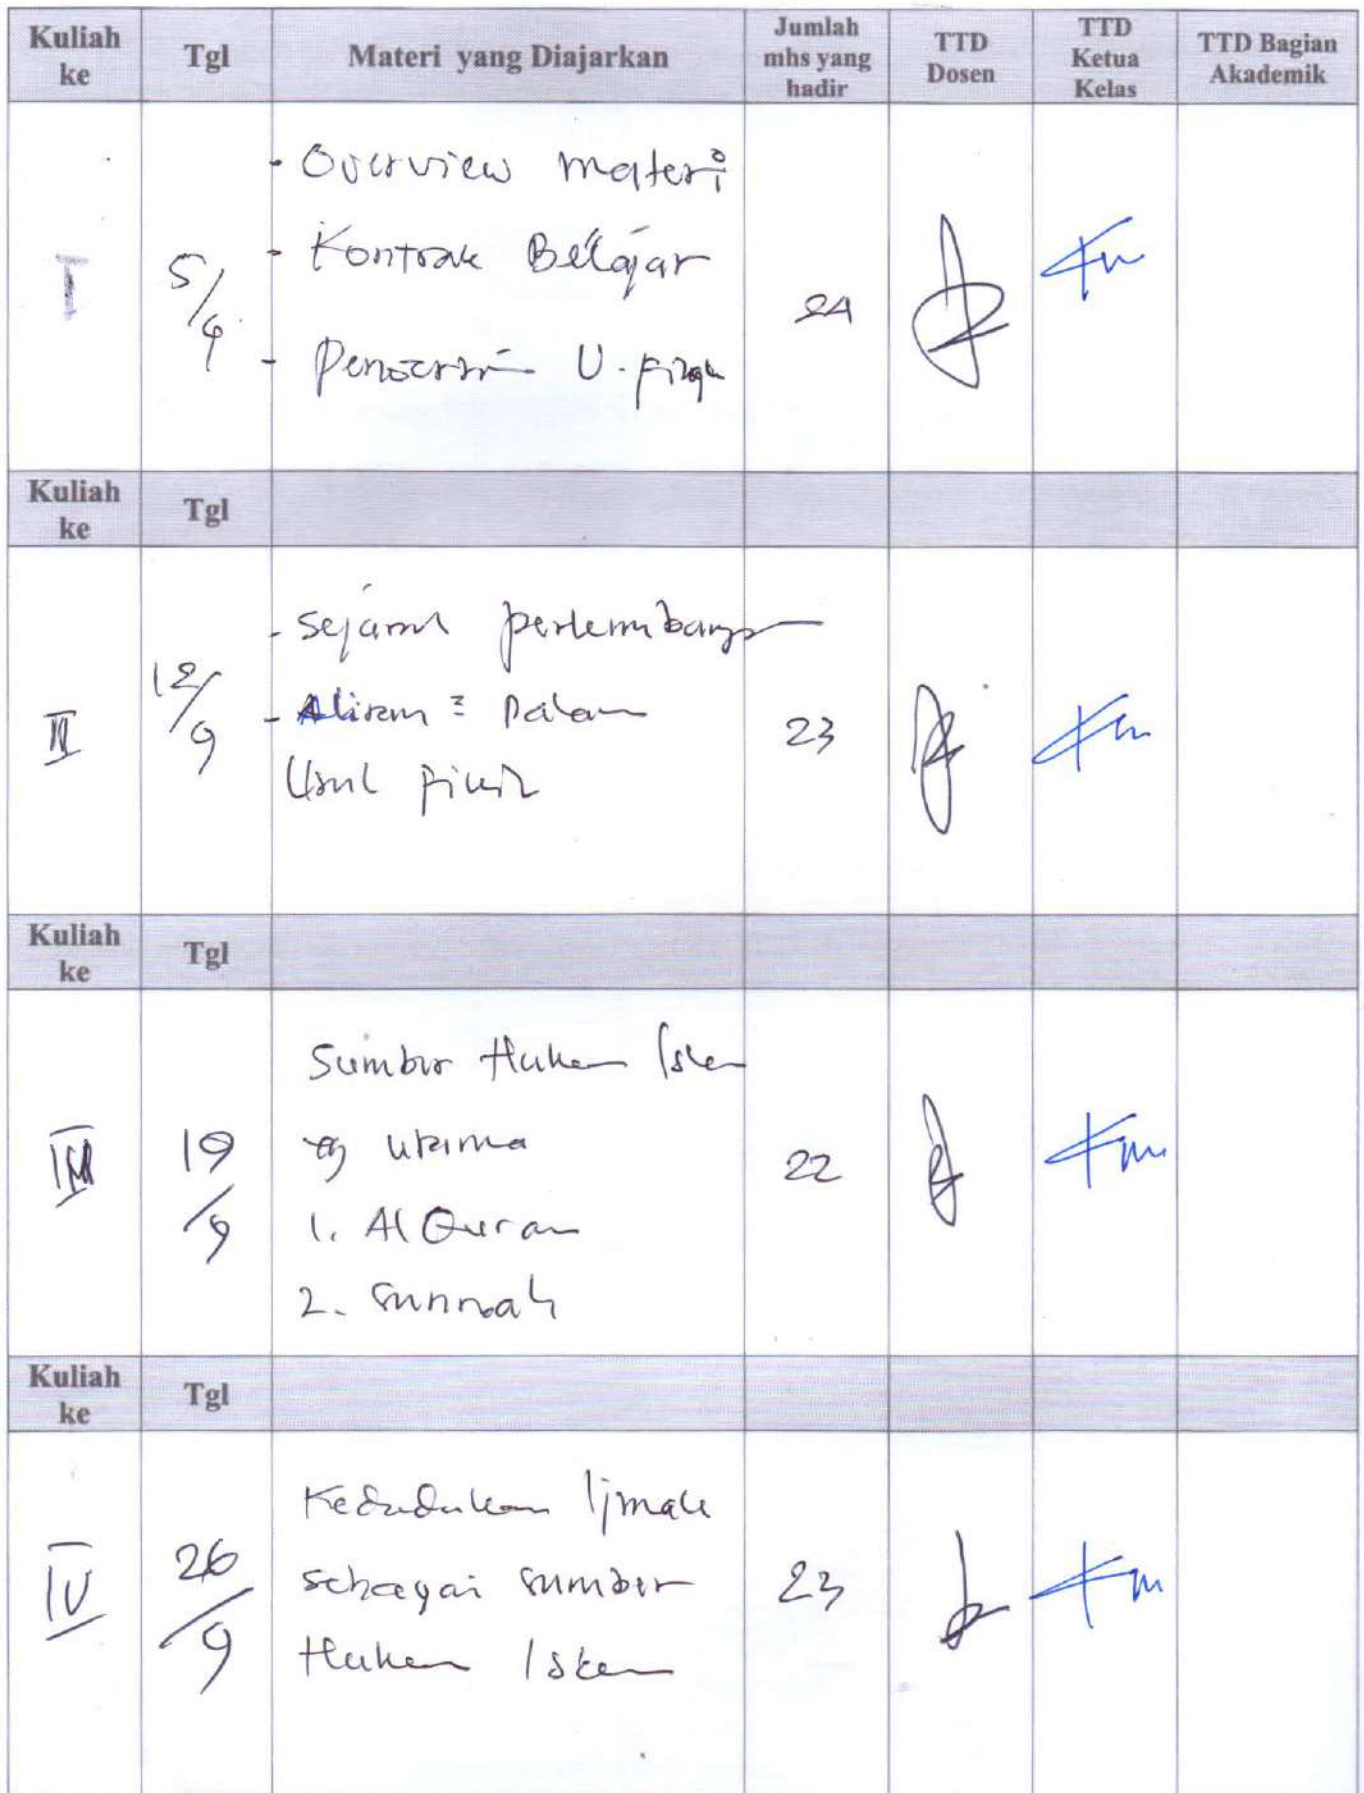 Kuliah ke Tgl Materi yang Diajarkan Jumlah mhs yang hadir TTD Dosen TTD Ketua Kelas TTD Bagian Akademik
- Overview materi
- Kontrak Belajar
I 5/9 24
- U. Fiqh
Kuliah ke Tgl
- Sejarah perkembangan
II 12/9 - Aliran = Dalam 23
Usul Fikih
Kuliah ke Tgl
Sumber Hukum Islam
III 19/9 yg utama 22
1. Al Quran
2. Sunnah
Kuliah ke Tgl
Kedudukan Ijmak
IV 26/9 sebagai sumber 23
Hukum Islam